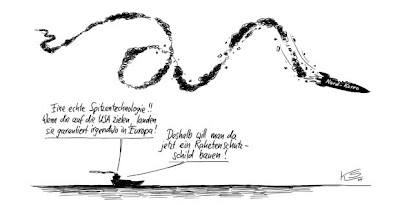 Nord-Korea
Eine echte Spitzentechnologie!!
Wenn die auf die USA zielen, landen
sie garantiert irgendwo in Europa!
Deshalb will man da
jetzt ein Raketenschutz-
schild bauen!